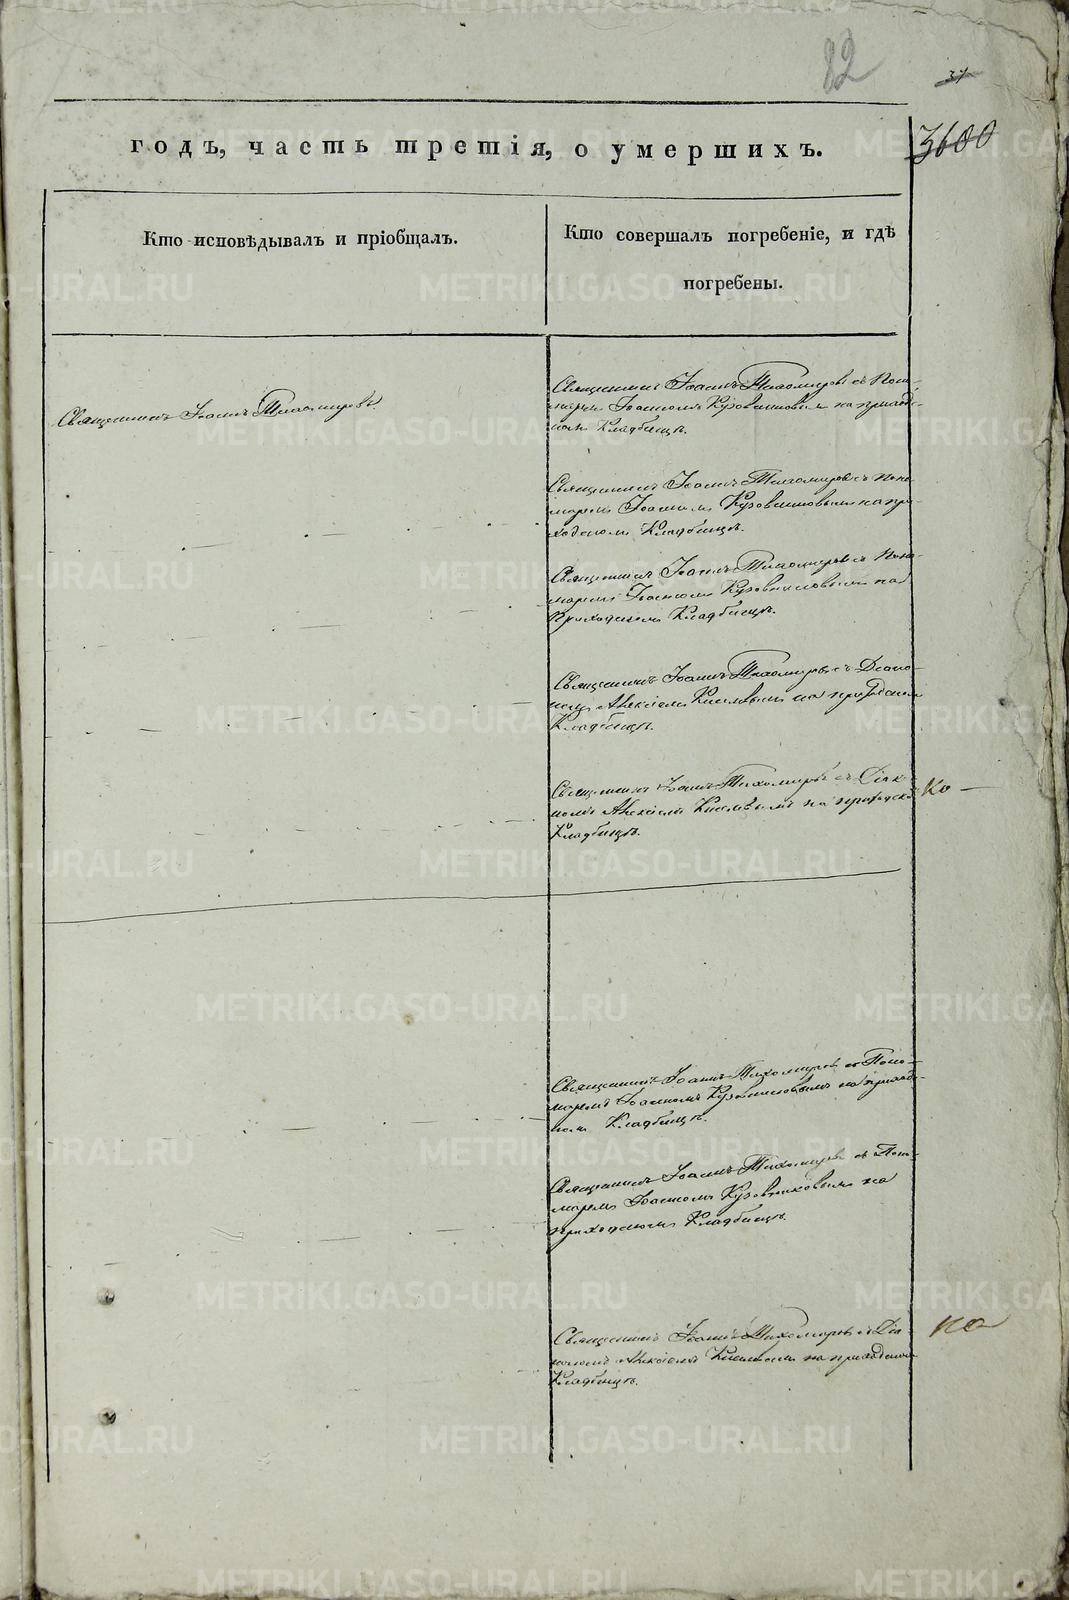 82
31
3600
годъ, часть третія, о умершихъ.
Кто исповѣдывалъ и пріобщалъ.
Кто совершалъ погребеніе, и гдѣ
погребены.
Священникъ Іоаннъ Тихомировъ
Священникъ Іоаннъ Тихомировъ съ Поно-
маремъ Іоанномъ Кузовниковымъ на приход-
номъ Кладбищѣ.
Священникъ Іоаннъ Тихомировъ съ Поно-
маремъ Іоанномъ Кузовниковымъ на при-
ходскомъ Кладбищѣ.
Священникъ Іоаннъ Тихомировъ съ Поно-
маремъ Іоанномъ Кузовниковымъ на
Приходскомъ Кладбищѣ.
Священникъ Іоаннъ Тихомировъ съ Діако-
номъ Алексіемъ на приходскомъ
Кладбищѣ.
Священникъ Іоаннъ Тихомировъ съ Діако-
номъ Алексіемъ на приходско
Кладбищѣ.
Ко
Священникъ Іоаннъ Тихомировъ съ Поно-
маремъ Іоанномъ Кузовниковымъ на приход-
номъ Кладбищѣ.
Священникъ Іоаннъ Тихомировъ съ Поно-
маремъ Іоанномъ Кузовниковымъ на
приходскомъ Кладбищѣ.
Священникъ Іоаннъ Тихомировъ съ Діа-
кономъ Алексіемъ на приходскомъ
Кладбищѣ.
METRIKI.GASO-URAL.RU